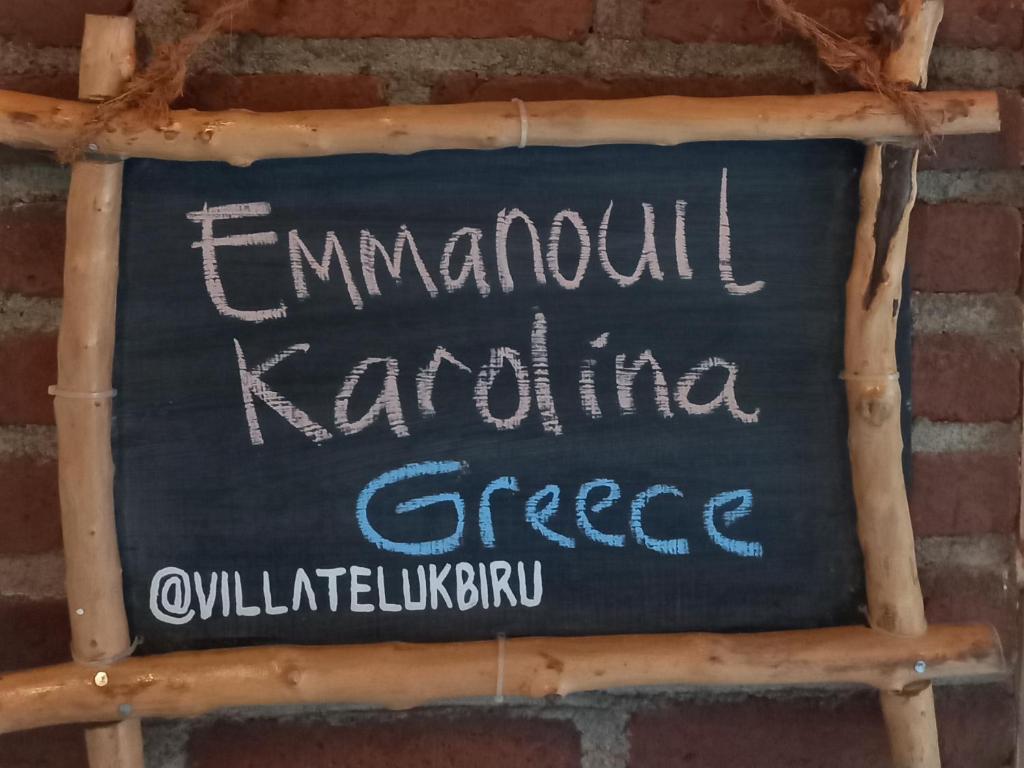 Emmanouil
Karolina
Greece
@VILLATELUKBIRU